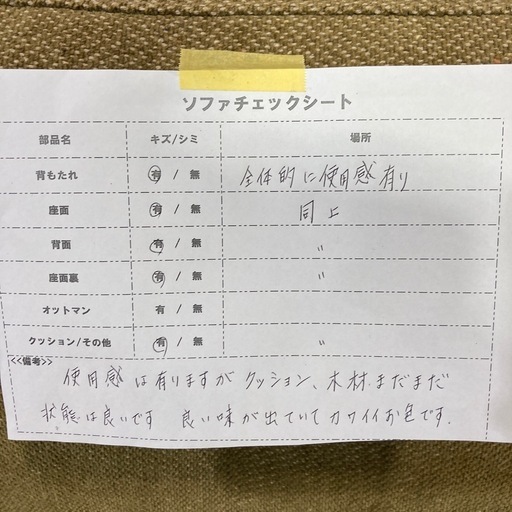 ソファチェックシート
部品名 キズ/シミ 場所
背もたれ 有 / 無 全体的に使用感有り
座面 有 / 無 同上
背面 有 / 無 〃
座面裏 有 / 無 〃
オットマン 有 / 無
クッション/その他 有 / 無 〃
<<備考>>
使用感は有りますがクッション、木材まだまだ
状態は良いです 良い味が出ていてカワイイお色です.